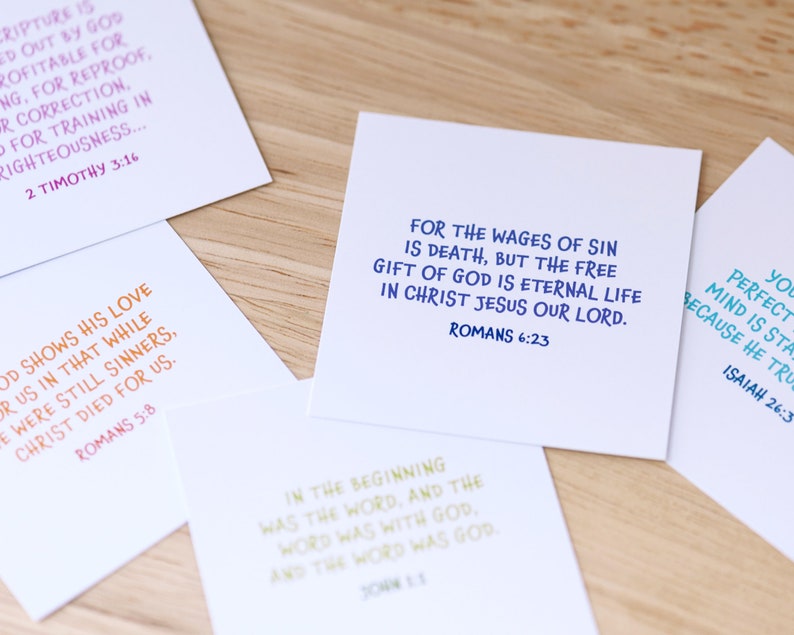 CRIPTURE IS
ED OUT BY GOD
ROFITABLE FOR
NG, FOR REPROOF,
OR CORRECTION,
D FOR TRAINING IN
RIGHTEOUSNESS...
2 TIMOTHY 3:16
FOR THE WAGES OF SIN
IS DEATH, BUT THE FREE
GIFT OF GOD IS ETERNAL LIFE
IN CHRIST JESUS OUR LORD.
ROMANS 6:23
YOU
PERFECT
MIND IS STA
BECAUSE HE TRU
ISAIAH 26:3
OD SHOWS HIS LOVE
OR US IN THAT WHILE
E WERE STILL SINNERS,
CHRIST DIED FOR US.
ROMANS 5:8
IN THE BEGINNING
WAS THE WORD, AND THE
WORD WAS WITH GOD,
AND THE WORD WAS GOD.
JOHN 1:1